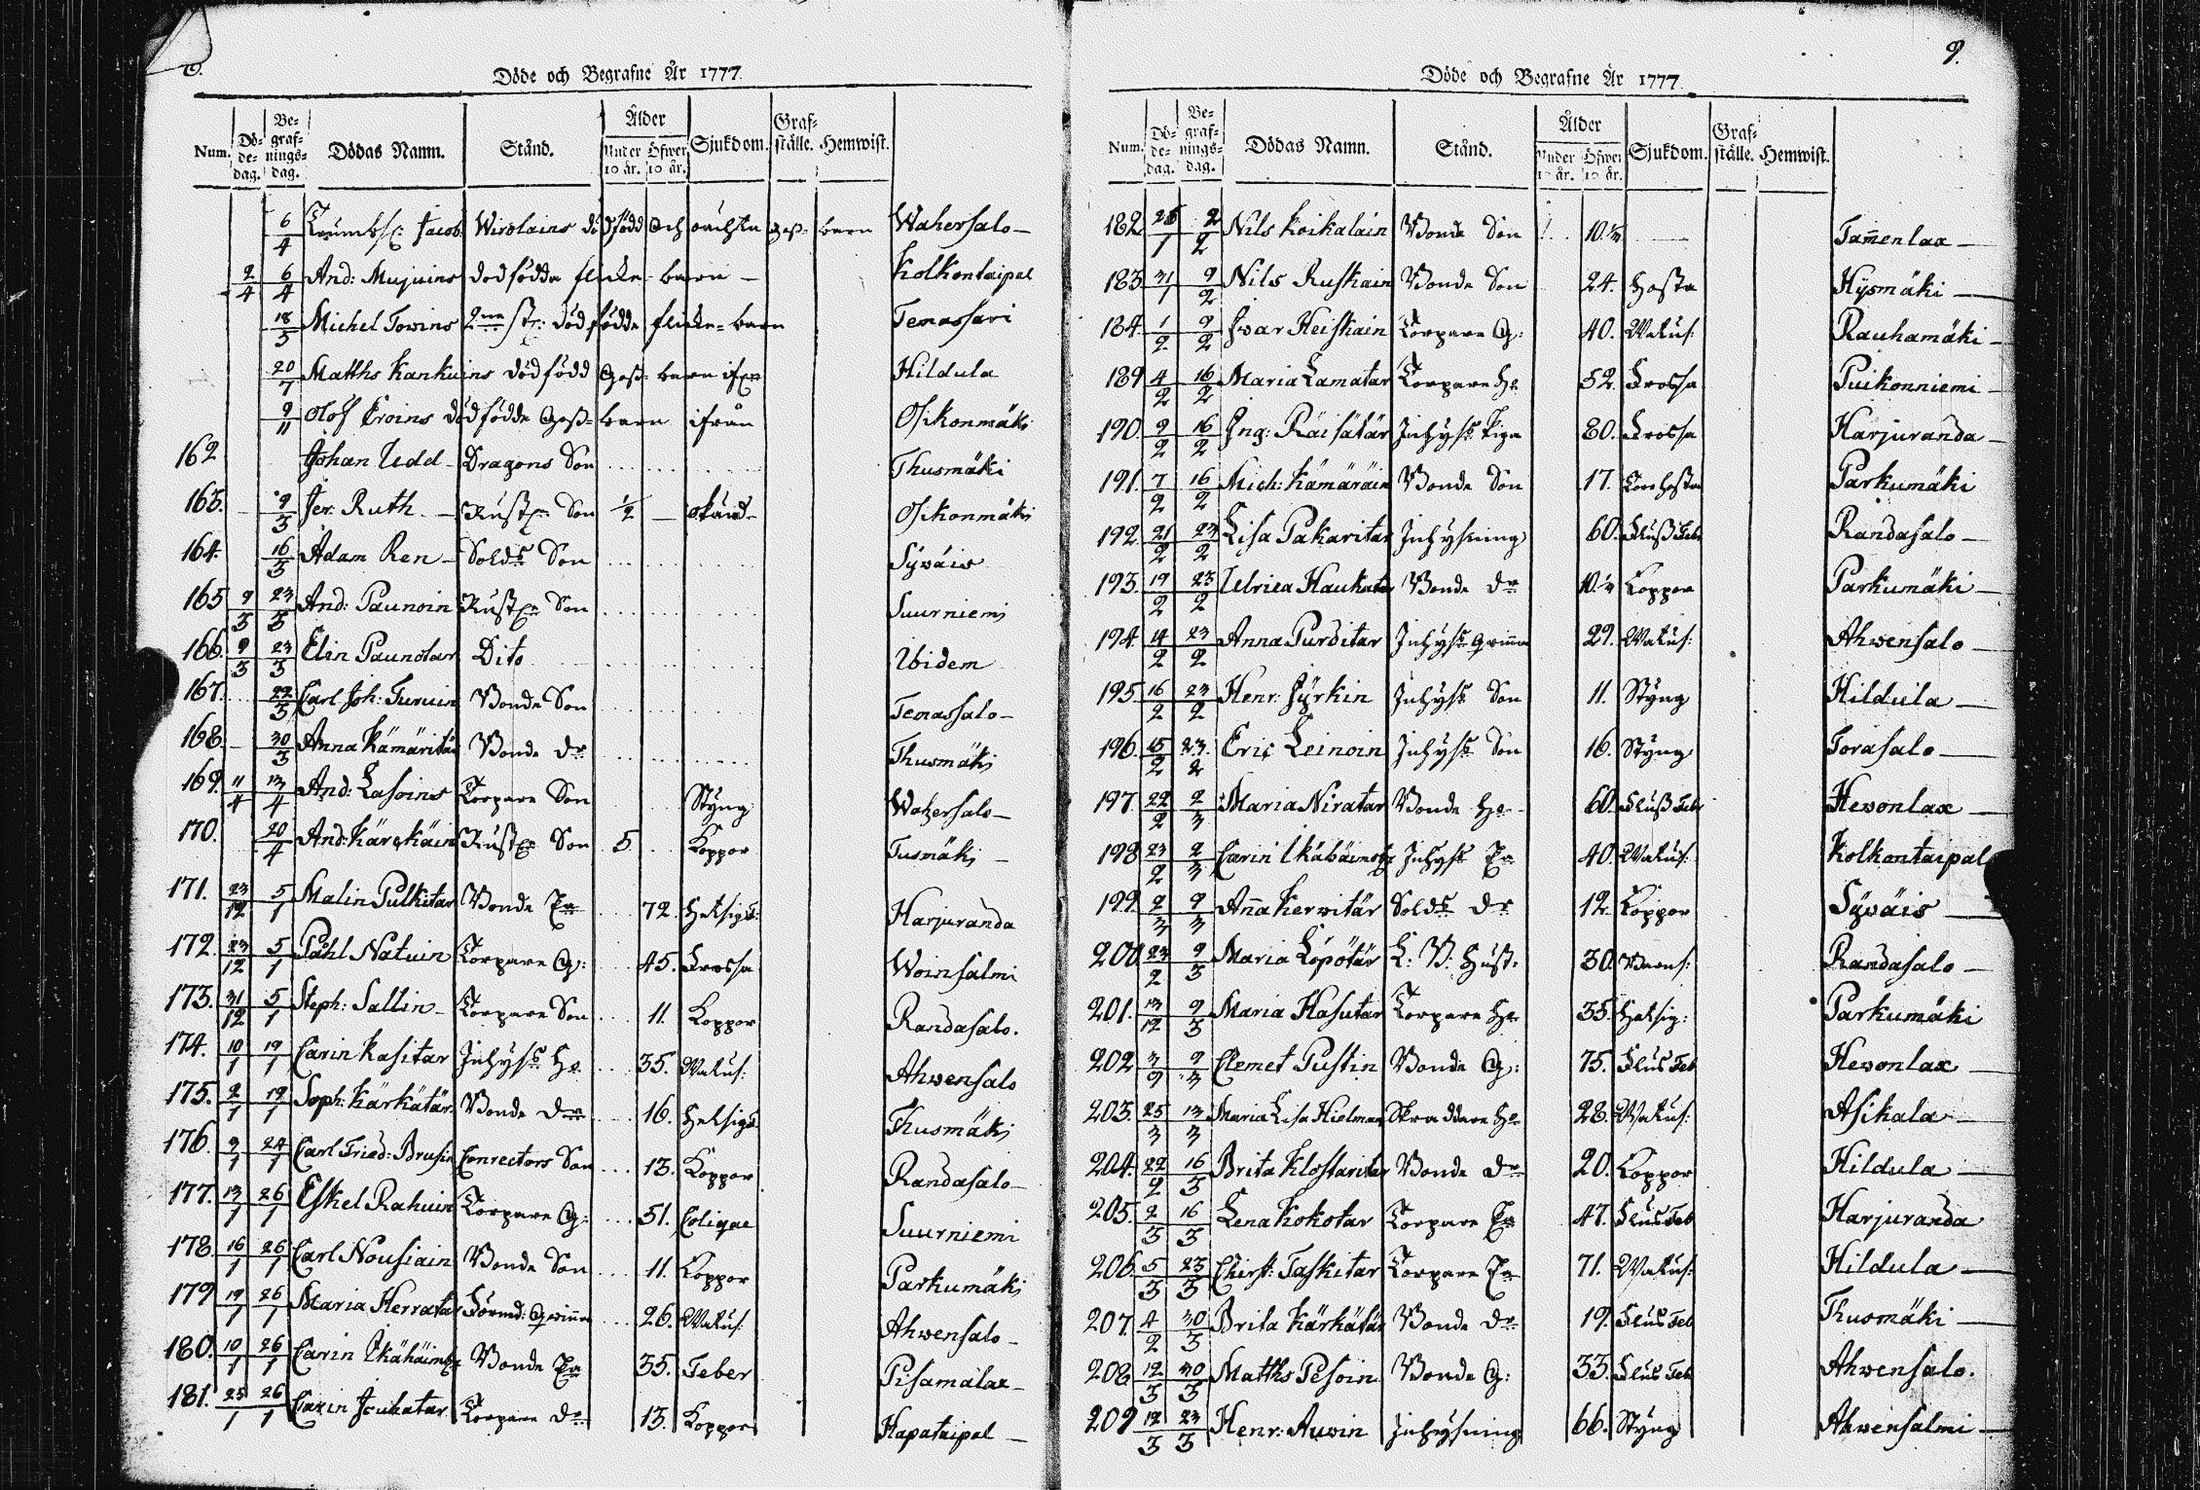 Döde och Begrafne År 1777.
Num. Dö-de-dag. Be-graf-nings-dag. Dödas Namn. Stånd. Ålder Under 10 år. Öfwer 10 år. Sjukdom. Graf-ställe. Hemwist.
6/4 Jacob Wirolains dödfödd och barn Wahersalo
2/4 6/4 And: Mujuins dödfödda flicke-barn Kolkontaipal
18/5 Michel Towins 2ne st: dödfödda flicke-barn Temassari
20/7 Matths Kankuins dödfödd Goss-barn Hildula
9/11 Olof Eroins dödfödde Goss-barn ifrån Osikonmäki
162. Johan Udd Dragons Son Thusmäki
163. 9/3 Jer: Ruth Son 1/2 okänd Osikonmäki
164. 16/3 Adam Ren Solds Son Syväis
165 9/3 23/3 And: Paunoin Son Suurniemi
166. 9/3 23/3 Elin Paunotar Dito Ibidem
167. 22/3 Carl Joh: Turuin Bonde Son Temassalo
168. 30/3 Anna Kämäritär Bonde Dr Thusmäki
169. 11/4 13/4 And: Lasoins Torpare Son Styng Wahersalo
170. 20/4 And: Kärckäin Son 5 Koppor Tusmäki
171. 23/12 5/1 Malin Pulkitar Bonde Ea 72. Hetsigt: Harjuranda
172. 23/12 5/1 Påhl Natuin Torpare G: 45. Frossa Woinsalmi
173. 31/12 5/1 Steph: Sallin Torpare Son 11. Koppor Randasalo.
174. 10/1 19/1 Carin Kasitar Inhyss Ho 35. Watus: Ahwensalo
175. 2/1 19/1 Soph: Kärkätär Bonde Dr 16. Hetsigt Thusmäki
176. 9/1 24/1 Carl Fried: Brusin Conrectors Son 13. Koppor Randasalo
177. 13/1 26/1 Eskel Rahuin Torpare G: 51. Colique Suurniemi
178 16/1 26/1 Carl Nousiain Bonde Son 11. Koppor Parkumäki
179 19/1 26/1 Maria Herratar 26. Watus: Ahwensalo
180. 10/1 26/1 Carin Bonde Ea 35. Feber Pisamalax
181. 25/1 26/1 Carin Torpare Dr 13. Koppor Hapataipal
9.
Döde och Begrafne År 1777.
Num. Dö-de-dag. Be-graf-nings-dag. Dödas Namn. Stånd. Ålder Under 10 år. Öfwer 10 år. Sjukdom. Graf-ställe. Hemwist.
182 26/1 2/2 Nils Koikalain Bonde Son 10. Tam̄enlax
183 31/1 9/2 Nils Ruskain Bonde Son 24. Hosta Hysmäki
184. 1/2 9/2 Ivar Heiskain Torpare G: 40. Watus: Rauhamäki
189 4/2 16/2 Maria Lamatar Torpare Ho 52. Frossa Puikonniemi
190. 9/2 16/2 Ing: Räisätär Inhyss Piga 80. Frossa Harjuranda
191. 7/2 16/2 Mich: Kämäräin Bonde Son 17. Parkumäki
192. 21/2 23/2 Lisa Pakaritar Inhysning 60. Fluss Feb Randasalo
193. 19/2 23/2 Ulrica Haukatar Bonde Dr 10. Koppor Parkumäki
194. 14/2 23/2 Anna Purditar Inhyss Qwinna 29. Watus: Ahwensalo
195 16/2 23/2 Henr: Jyrkin Inhyss Son 11. Styng Hildula
196. 15/2 23/2 Eric Leinoin Inhyss Son 16. Styng Torasalo
197. 22/2 2/3 Maria Niratar Bonde Ho 60. Fluss Feb Hevonlax
198 23/2 2/3 Carin Inhyss Ea 40. Watus: Kolkontaipal
199. 2/3 9/3 An̄a Kerwitär Solds Dr 12. Koppor Syväis
200 23/2 9/3 Maria Löpötär L: B: Hust: 30. Randasalo
201. 13/12 9/3 Maria Hasutar Torpare Ho 35. Hetsig: Parkumäki
202 3/2 9/3 Clemet Pustin Bonde G: 75. Flus Feb Hevonlax
203. 25/3 13/3 Maria Lisa Hielman Skraddare Ho 28. Watus: Asikala
204. 22/2 16/3 Brita Klostaritar Bonde Dr 20. Koppor Hildula
205. 2/3 16/3 Lena Kokotar Torpare Ea 47. Flus Feb Harjuranda
206. 5/3 23/3 Christ: Taskitar Torpare Ea 71. Watus: Hildula
207. 4/2 30/3 Brita Kärkätär Bonde Dr 19. Flus Feb Thusmäki
208 12/3 30/3 Matths Pesoin Bonde G: 33. Flus Feb Ahwensalo.
209 12/3 23/3 Henr: Auvin Inhysning 66. Styng Ahwensalmi